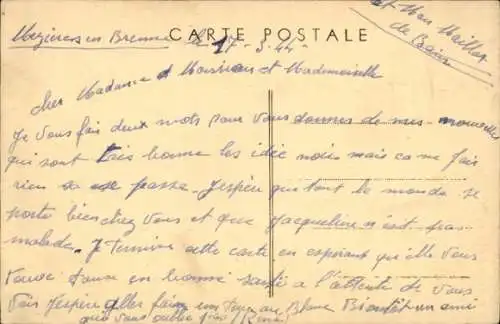 et Mon Maillot
de Bain
CARTE POSTALE
Mezieres en Brenne le 17-3-44-
Cher Madame et Monsieur et Mademoiselle
Je vous fais deux mots pour vous donner de mes nouvelles
qui sont très bonne les idée noir mais ca me fais
rien sa se passe. J'espère que tout le monde se
porte bien chez vous et que Jacqueline n'est pas
malade. Je termine cette carte en espérant qu'elle vous
trouve en bonne santé a l'attente de vous
voir J'espère faire un tour au Blanc Bientôt un ami
qui vous oublie pas